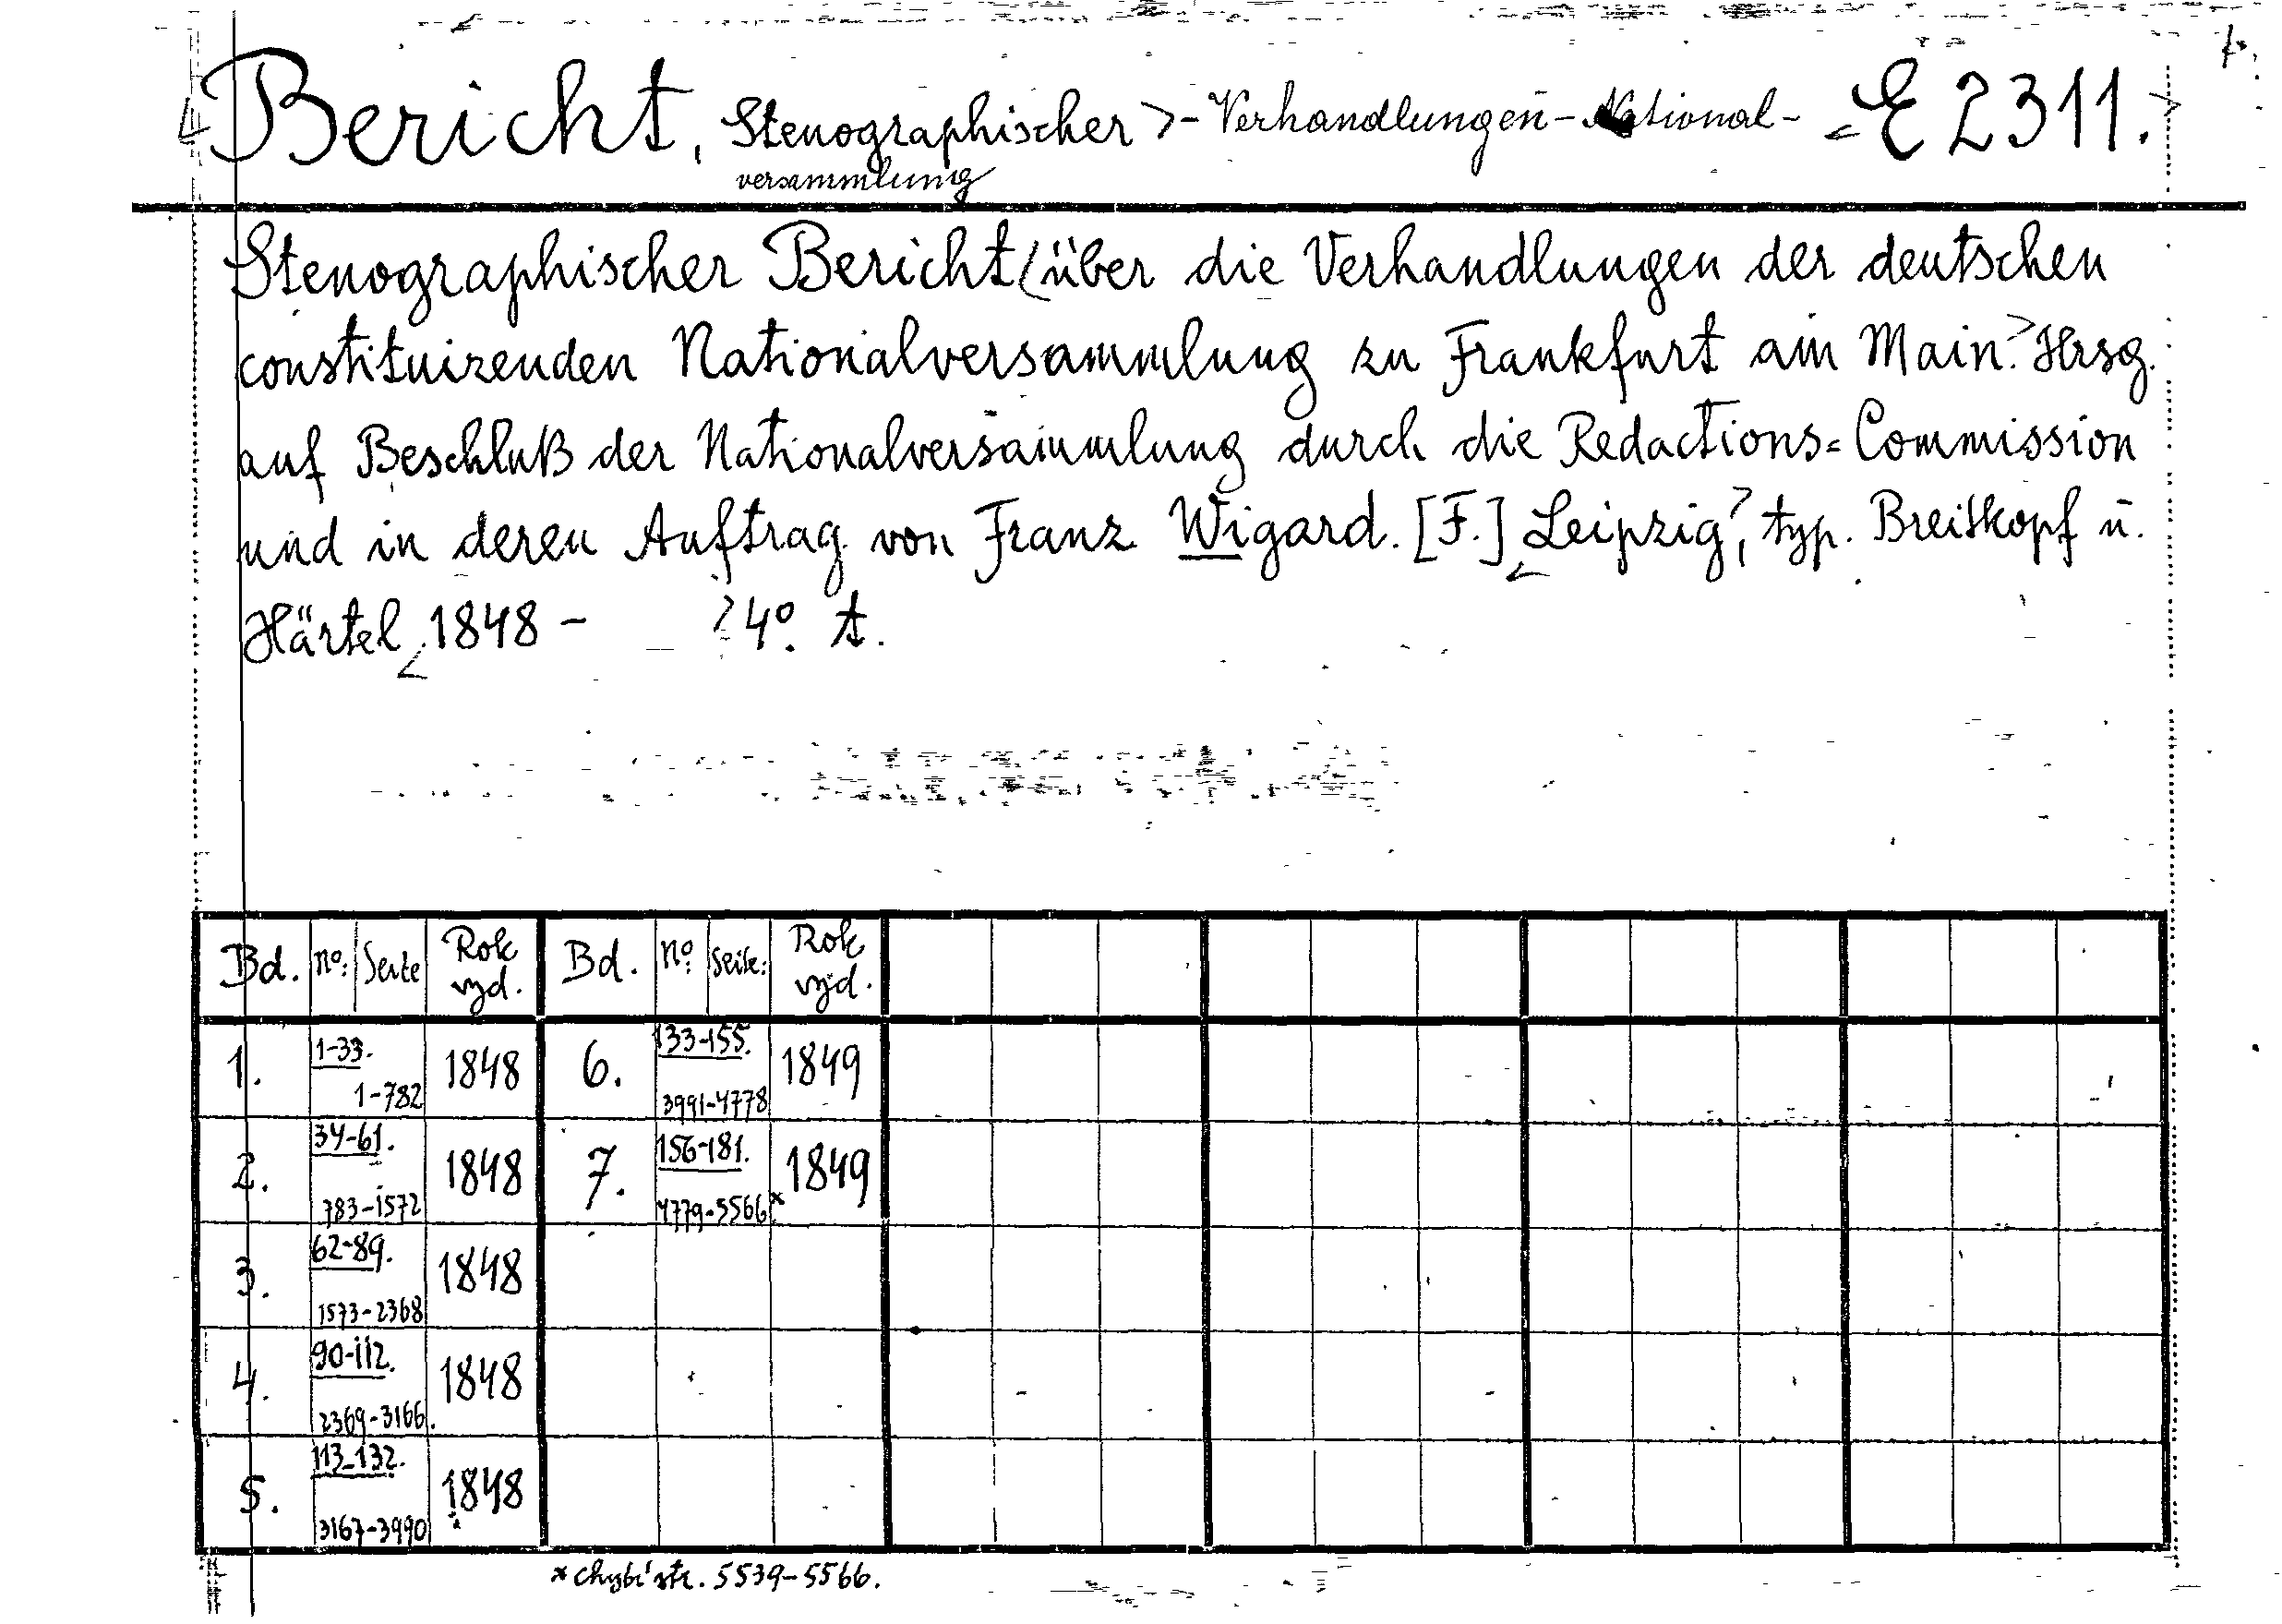 Bericht, Stenographischer - Verhandlungen - National- E 2311.
versammlung
Stenographischer Bericht über die Verhandlungen der deutschen
constituirenden Nationalversammlung zu Frankfurt am Main. Hrsg.
auf Beschluß der Nationalversammlung durch die Redactions=Commission
und in deren Auftrag von Franz Wigard. [F.] Leipzig, typ. Breitkopf u.
Härtel 1848 - 4º. t.
Bd. Nº: Seite Rok vyd. Bd. Nº: Seite: Rok vyd.
1. 1-33. 1-782 1848 6. 133-155. 3991-4778 1849
2. 34-61. 783-1572 1848 7. 156-181. 4779-5566* 1849
3. 62-89. 1573-2368 1848
4. 90-112. 2369-3166. 1848
5. 113-132. 3167-3990 1848
* chybí str. 5539-5566.